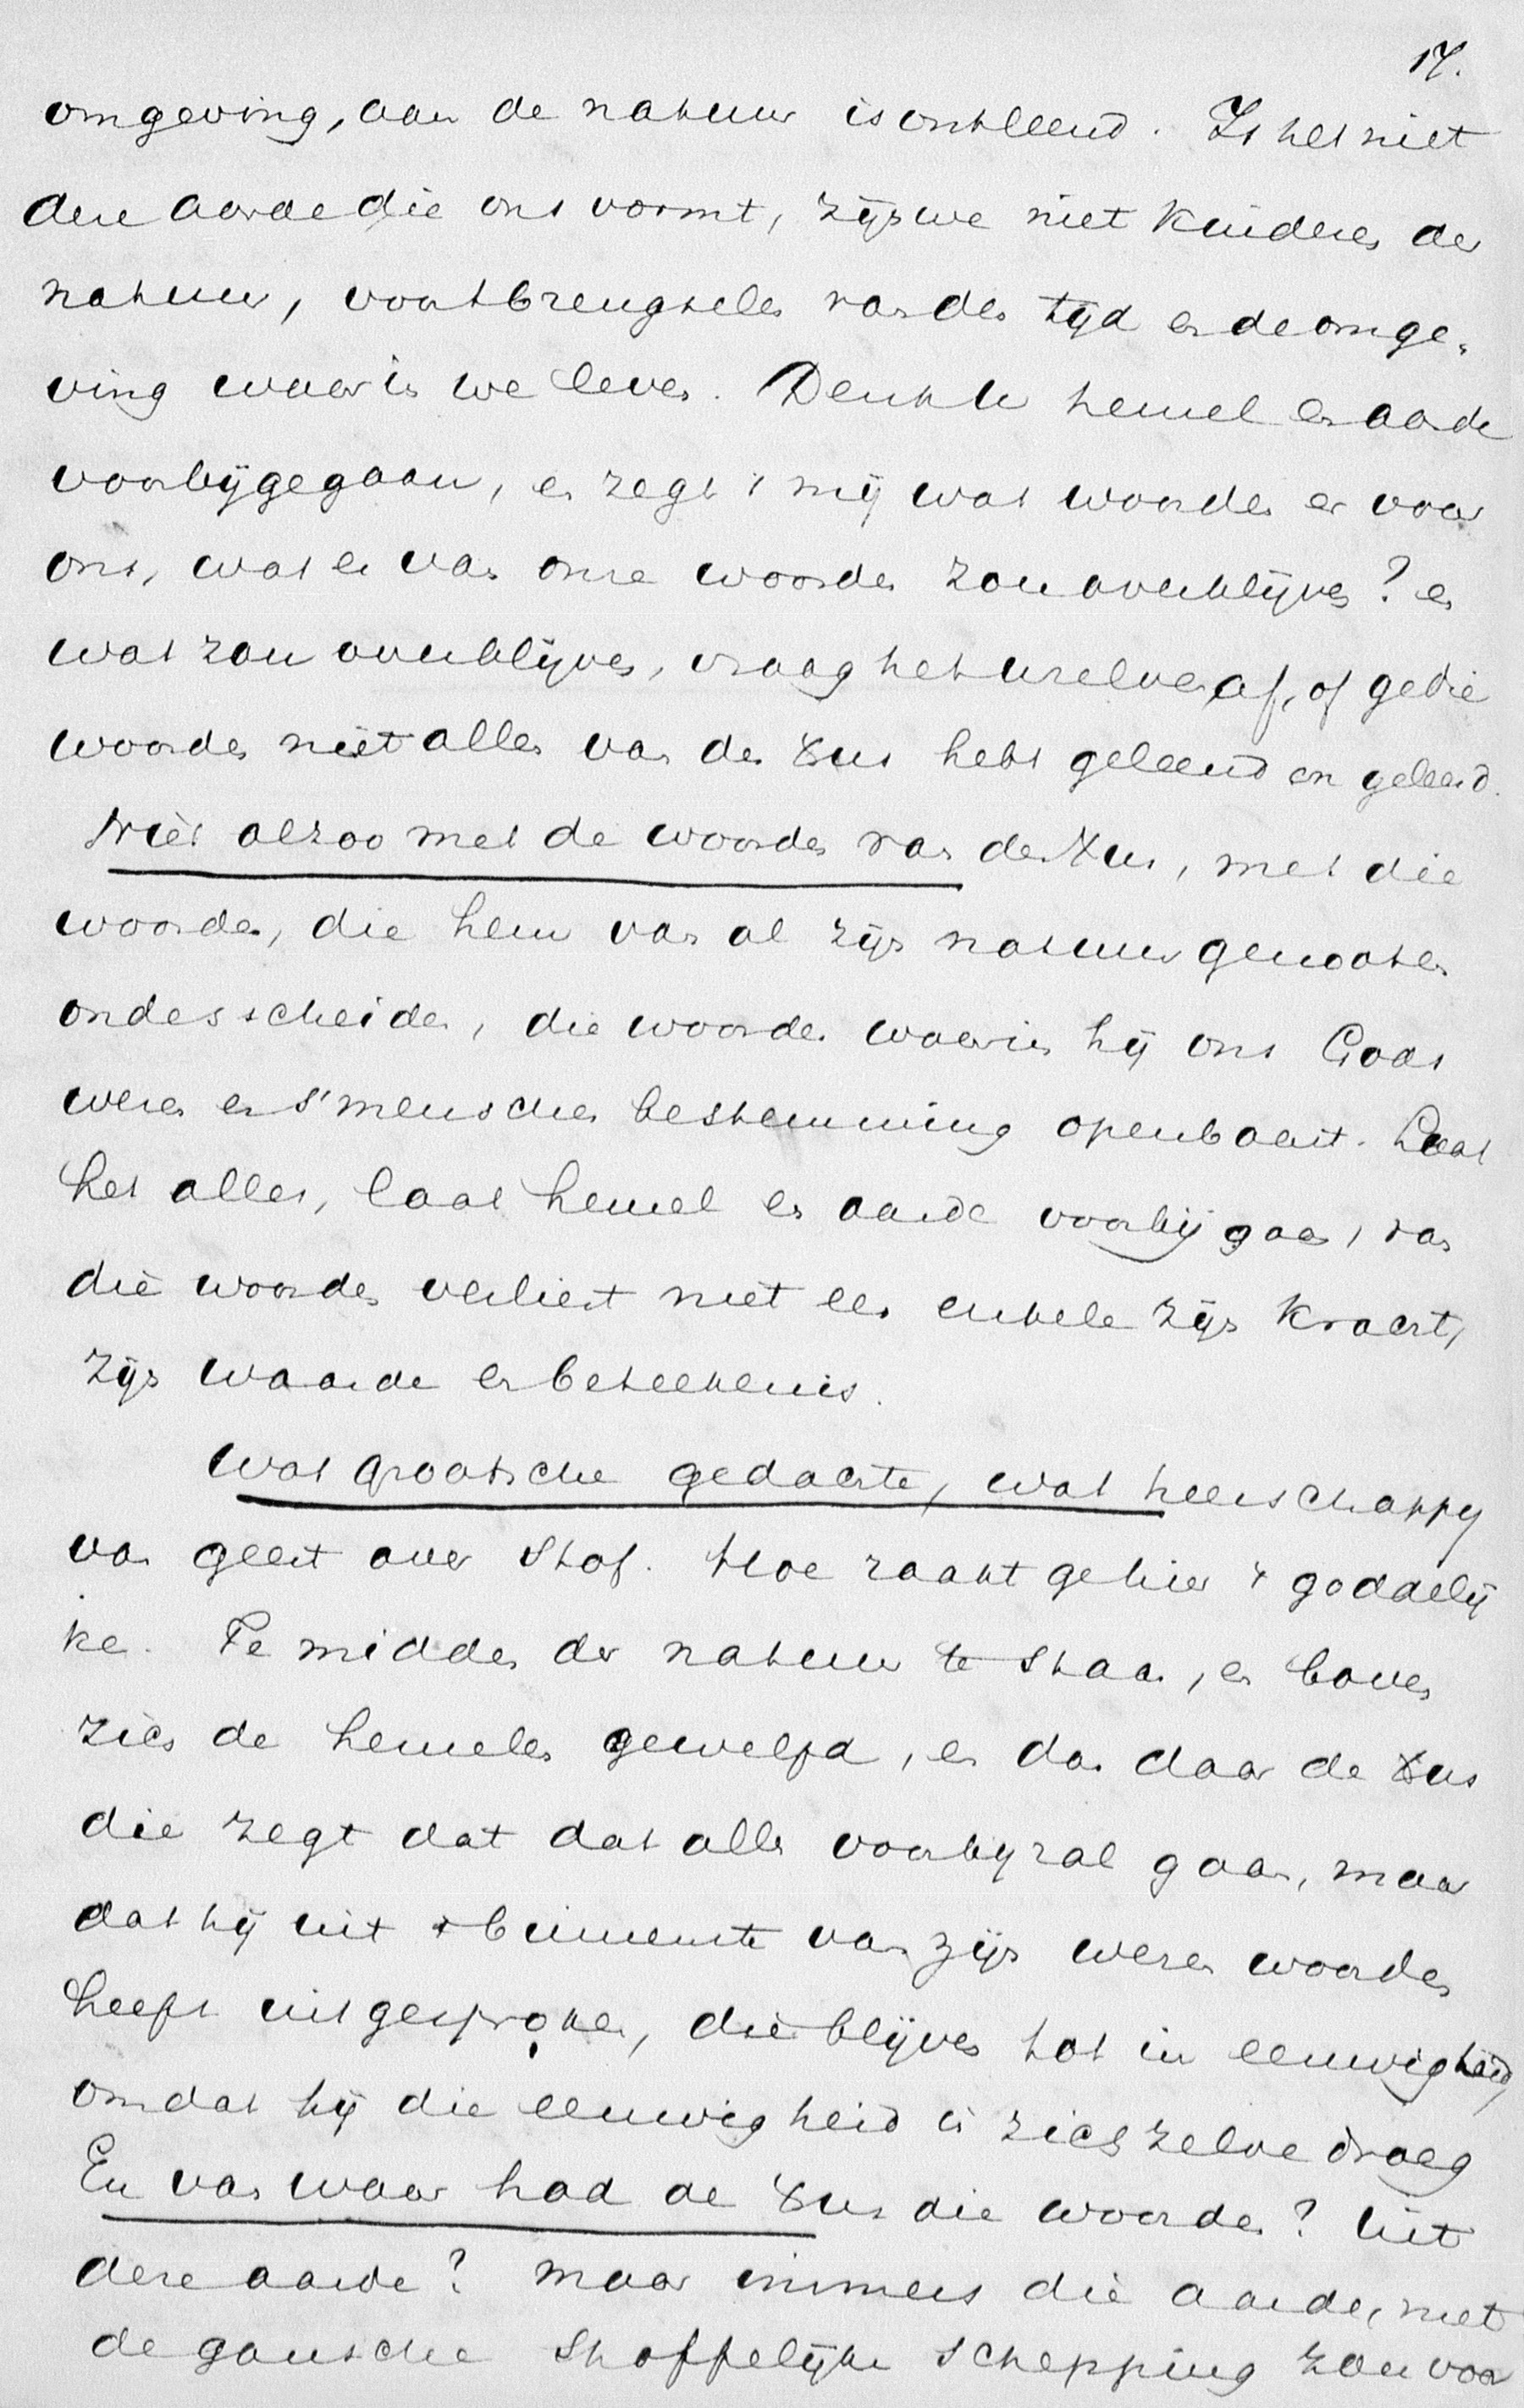 17.
omgeving, aan de natuur is ontleend. Is het niet
deze aarde die ons vormt, zijn we niet kinderen der
natuur, voortbrengselen van den tijd en de omge-
ving waarin we leven. Denk u hemel en aarde
voorbijgegaan, en zegt mij wat woorden er voor
ons, wat er van onze woorden zou overblijven? en
wat zou overblijven, vraag het uzelven af, of ge die
woorden niet allen van den Xus hebt geleend en geleerd.
Niet alzoo met de woorden van den Xus, met die
woorden, die hem van al zijn natuurgenooten
onderscheiden, die woorden waarin hij ons Gods
wezen en s'menschen bestemming openbaart. Laat
het alles, laat hemel en aarde voorbij gaan, van
die woorden verliest niet een enkele zijn kracht,
zijn waarde en beteekenis.
Wat grootsche gedachte, wat heerschappy
van geest over stof. Hoe raakt ge hier 't goddelij
ke. Te midden der natuur te staan, en boven
zich de hemelen gewelfd, en dan daar de Xus
die zegt dat dat alles voorbij zal gaan, maar
dat hij uit 't binnenste van zijn wezen woorden
heeft uitgesproken, die blijven tot in eeuwigheid,
omdat hij die eeuwigheid in zich zelve droeg
En van waar had de Xus die woorden? Uit
deze aarde? maar immers die aarde, met
de gansche stoffelijke schepping zou voor